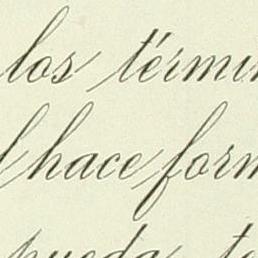 los térmi
hace for
pueda